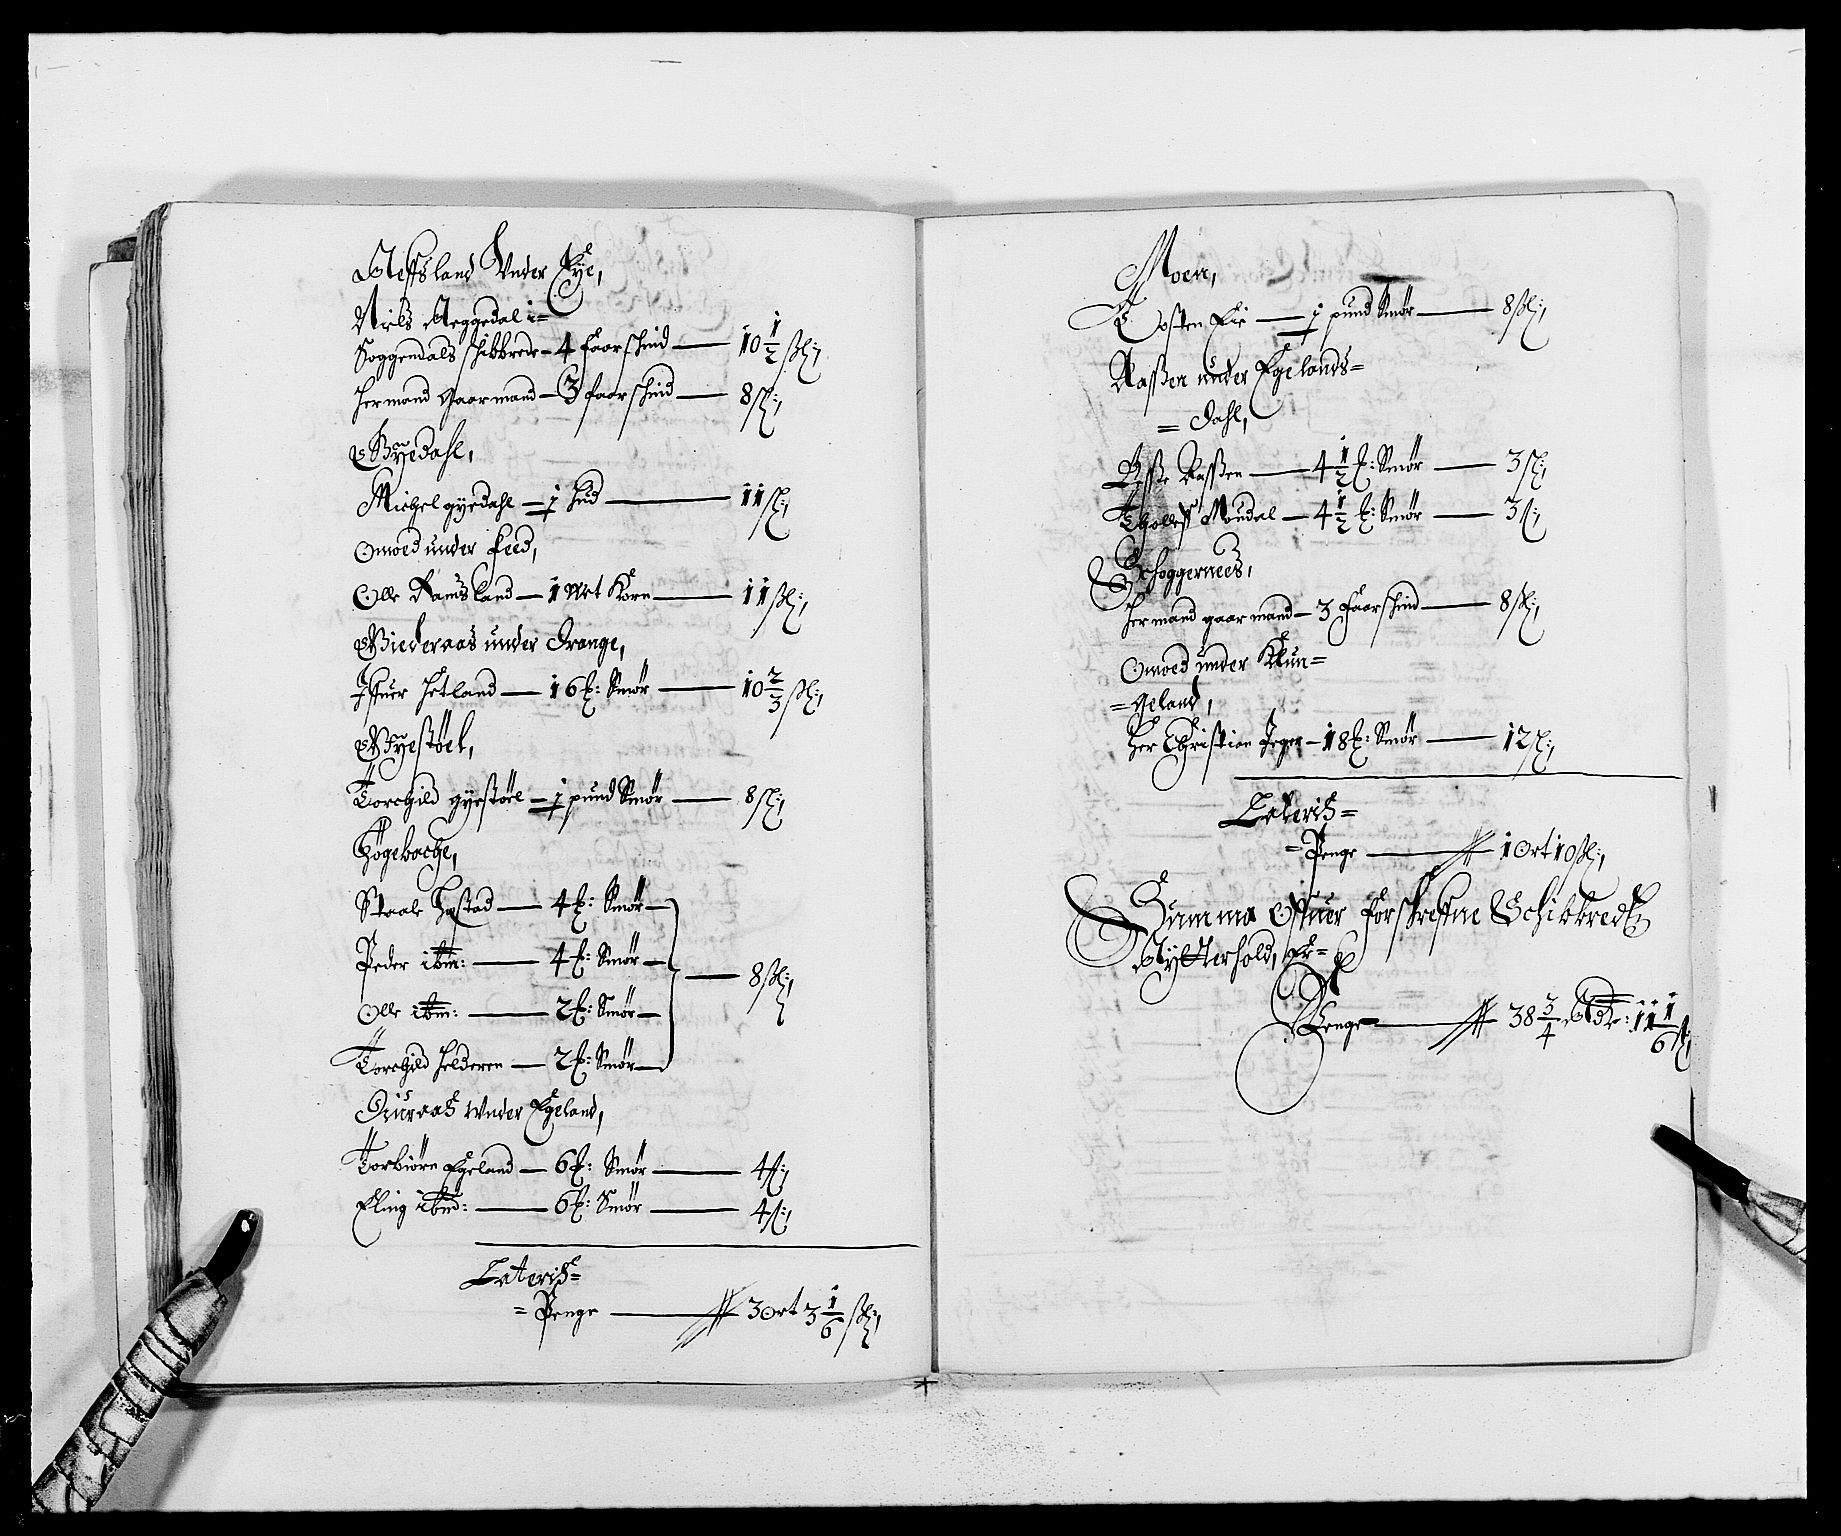 Refsland Under Eye,
Niels Reggedal i=
Soggendals schibbrede – 4 faarschind – 10 1/2 sk:
Hermand Gaarmand – 3 faarschind – 8 sk:
Gyedahl,
Michel gyedahl – 1 hud – 11 sk:
Omoed under Feed,
Olle Ramsland – 1 Mrk Korn – 11 sk:
Viederaas under Drange,
Ifuer Hetland – 16 m: Smør – 10 2/3 sk:
Gyestöel,
Torchild gyestöel – 1 pund Smør – 8 sk:
Høgebache,
Staale – 4 m: Smør
Peder ibm: – 4 m: Smør – 8 sk:
Olle ibm: – 2 m: Smør
Torchild Helderen – 2 m: Smør
under Egeland,
Torbiørn Egeland – 6 m: Smør – 4 sk:
Eling ibid: – 6 m: Smør – 4 sk:
Lateris=
=Penge – 3 Ort 3 1/6 sk:
Moen,
Tosten Eie – 1 pund Smør – 8 sk:
Rassen under Egelands=
=dahl,
Rassen – 4 1/2 m: Smør – 3 sk:
Tholleff Moudal – 4 1/2 m: Smør – 3 sk:
Schoggernees,
Hermand gaarmand – 3 Faarschind – 8 sk:
Omoed under Klun=
=geland,
Her Christian Jeger – 18 m: Smør – 12 sk:
Lateris=
=Penge – 1 Ort 10 sk:
Summa Ofuer forschrefne Schibbredes
Bÿxterhold, Er=
Penge – 38 3/4 Rdr: 11 1/6 sk: